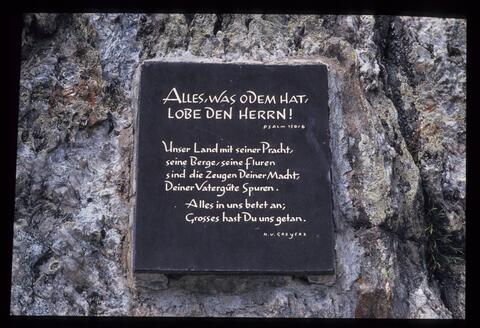 ALLES, WAS ODEM HAT,
LOBE DEN HERRN!
PSALM 150/6
Unser Land mit seiner Pracht,
seine Berge, seine Fluren
sind die Zeugen Deiner Macht,
Deiner Vatergüte Spuren.
Alles in uns betet an;
Grosses hast Du uns getan.
H. V. GREYERZ